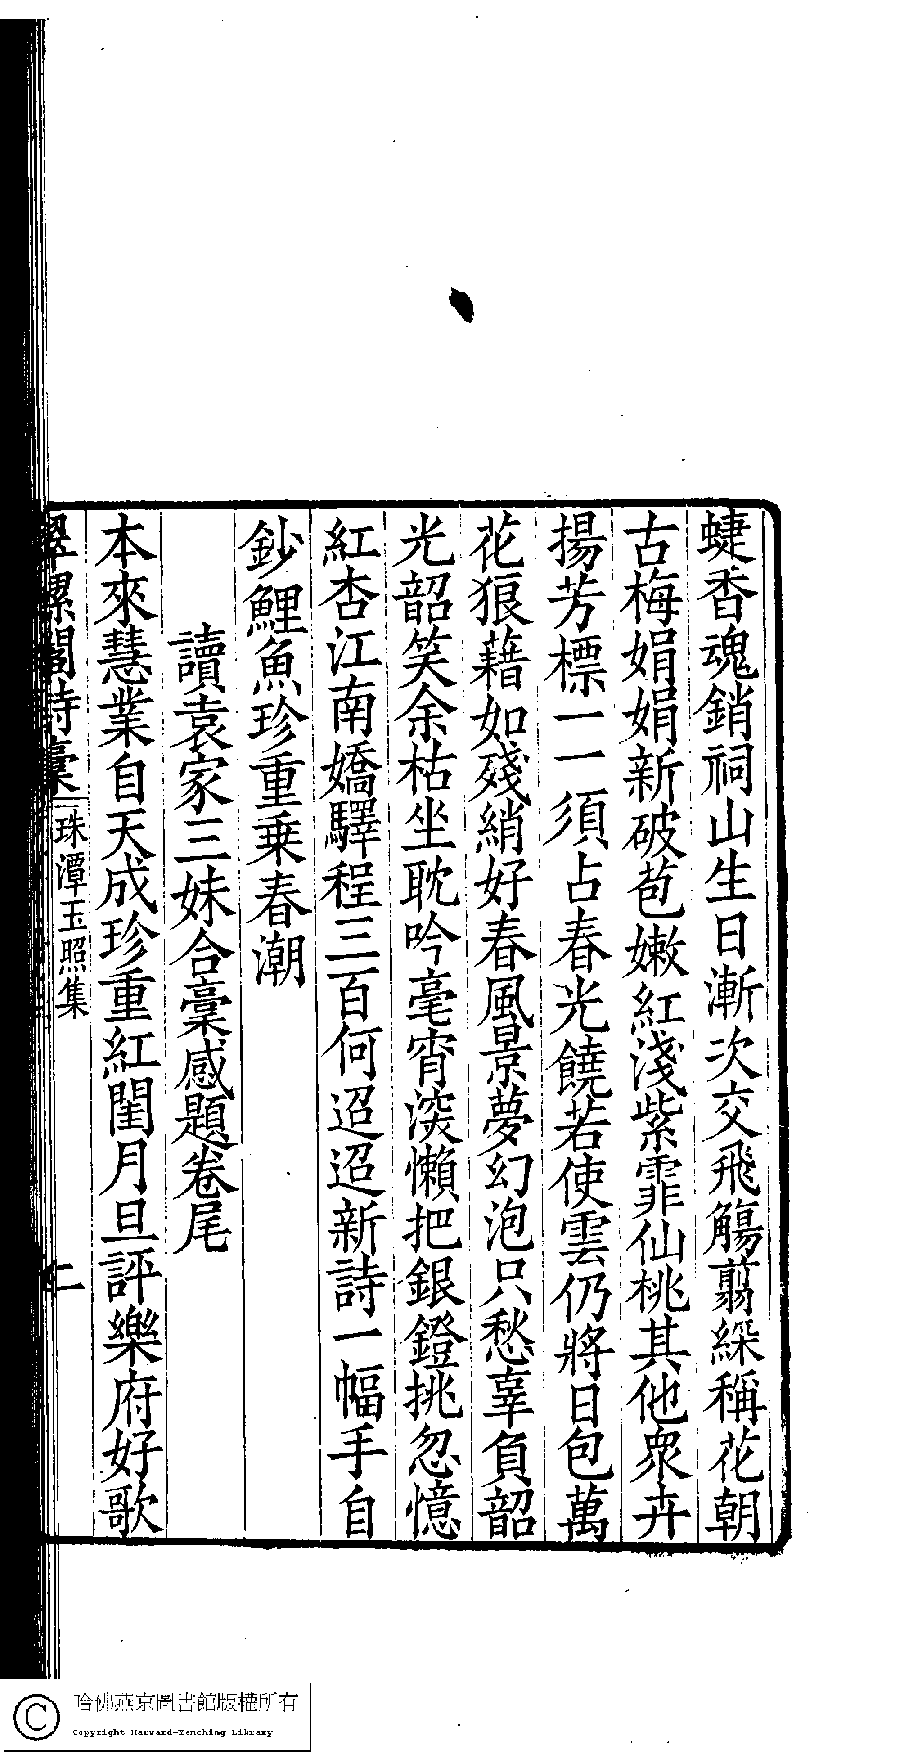 蜨香魂銷祠山生日漸次交飛觴翦綵稱花朝
古梅娟娟新破苞嫩紅淺紫霏仙桃其他衆卉
揚芳標一一須占春光饒若使雲仍將日包萬
花狼藉如殘綃好春風景夢幻泡只愁辜負韶
光韶笑余枯坐耽吟毫宵深懶把銀鐙挑忽憶
紅杏江南嬌驛程三百何迢迢新詩一幅手自
鈔鯉魚珍重乗春潮
讀袁家三妹合稾感題卷尾
本來慧業自天成珍重紅閨月旦評樂府好歌
翠螺閣詩稾 珠潭玉照集
哈佛燕京圖書館版權所有
Copyright Harvard-Yenching Library